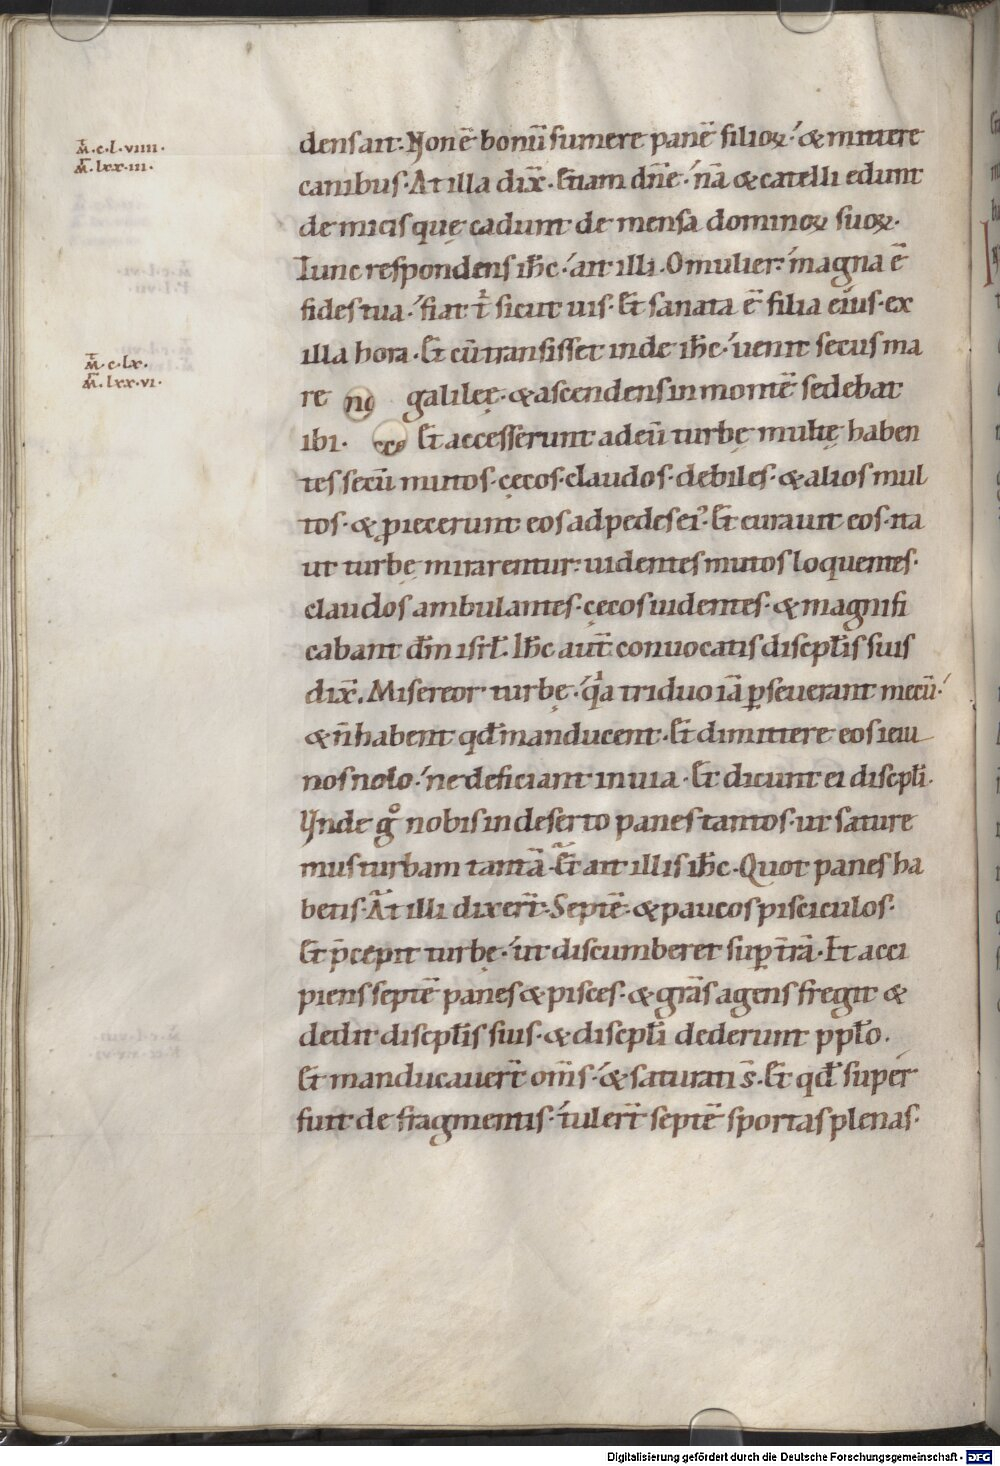 M̄.c.l.viiii.
M̄.lxx.iii.
dens ait. Non ē bonū sumere panē filioꝝ. & mittere
canibus. At illa dix̄. Etiam dn̄e. nā & catelli edunt
de micis quę cadunt de mensa dominoꝝ suoꝝ.
Tunc respondens ih̄c. ait illi. O mulier. magna ē
fides tua. fiat t' sicut uis. Et sanata ē filia eius. ex
illa hora. Et cū transisset inde ih̄c. uenit secus ma
M̄.c.lx.
M̄.lxx.vi.
re galileę. & ascendens in montē sedebat
ibi. Et accesserunt ad eū turbę multę haben
tes secū mutos. cęcos. claudos. debiles. & alios mul
tos. & ꝓiecerunt eos ad pedes ei'. Et curauit eos. ita
ut turbę mirarentur. uidentes mutos loquentes.
claudos ambulantes. cęcos uidentes. & magnifi
cabant dm̄ isrł. Ih̄c aut̄ conuocatis discipłis suis
dix̄. Misereor turbę. qa triduo iā ꝑseuerant mecū.
& n̄ habent qđ manducent. Et dimittere eos ieiu
nos nolo. ne deficiant in uia. Et dicunt ei discipłi.
Unde g° nobis in deserto panes tantos. ut sature
mus turbam tantā. Et ait illis ih̄c. Quot panes ha
betis. At illi dixer̄. Septē. & paucos pisciculos.
Et p̄cepit turbę. ut discumberet suꝑ tr̄ā. Et acci
piens septē panes & pisces. & gr̄as agens fregit &
dedit discipłis suis. & discipłi dederunt ppło.
Et manducauer̄ om̄s. & saturati s̄. Et qđ super
fuit de fragmentis. tuler̄ septē sportas plenas.
Digitalisierung gefördert durch die Deutsche Forschungsgemeinschaft - DFG